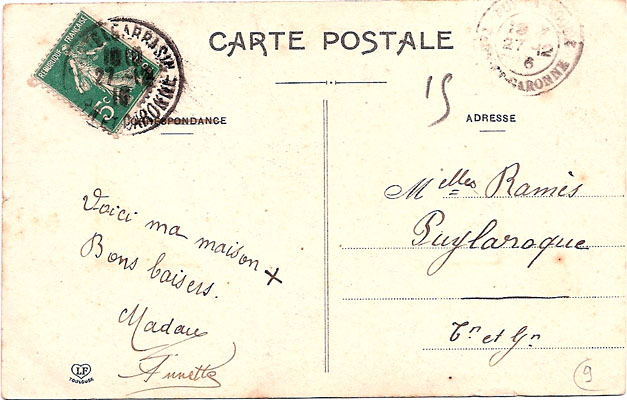 CARTE POSTALE
REPUBLIQUE FRANÇAISE
5c
27
GARONNE
27 12
6
GARONNE
15
CORRESPONDANCE
ADRESSE
Voici ma maison +
Bons baisers.
Madau
Annette
Melles Ramès
Puylaroque
Tn et Gn
LF
TOULOUSE
9